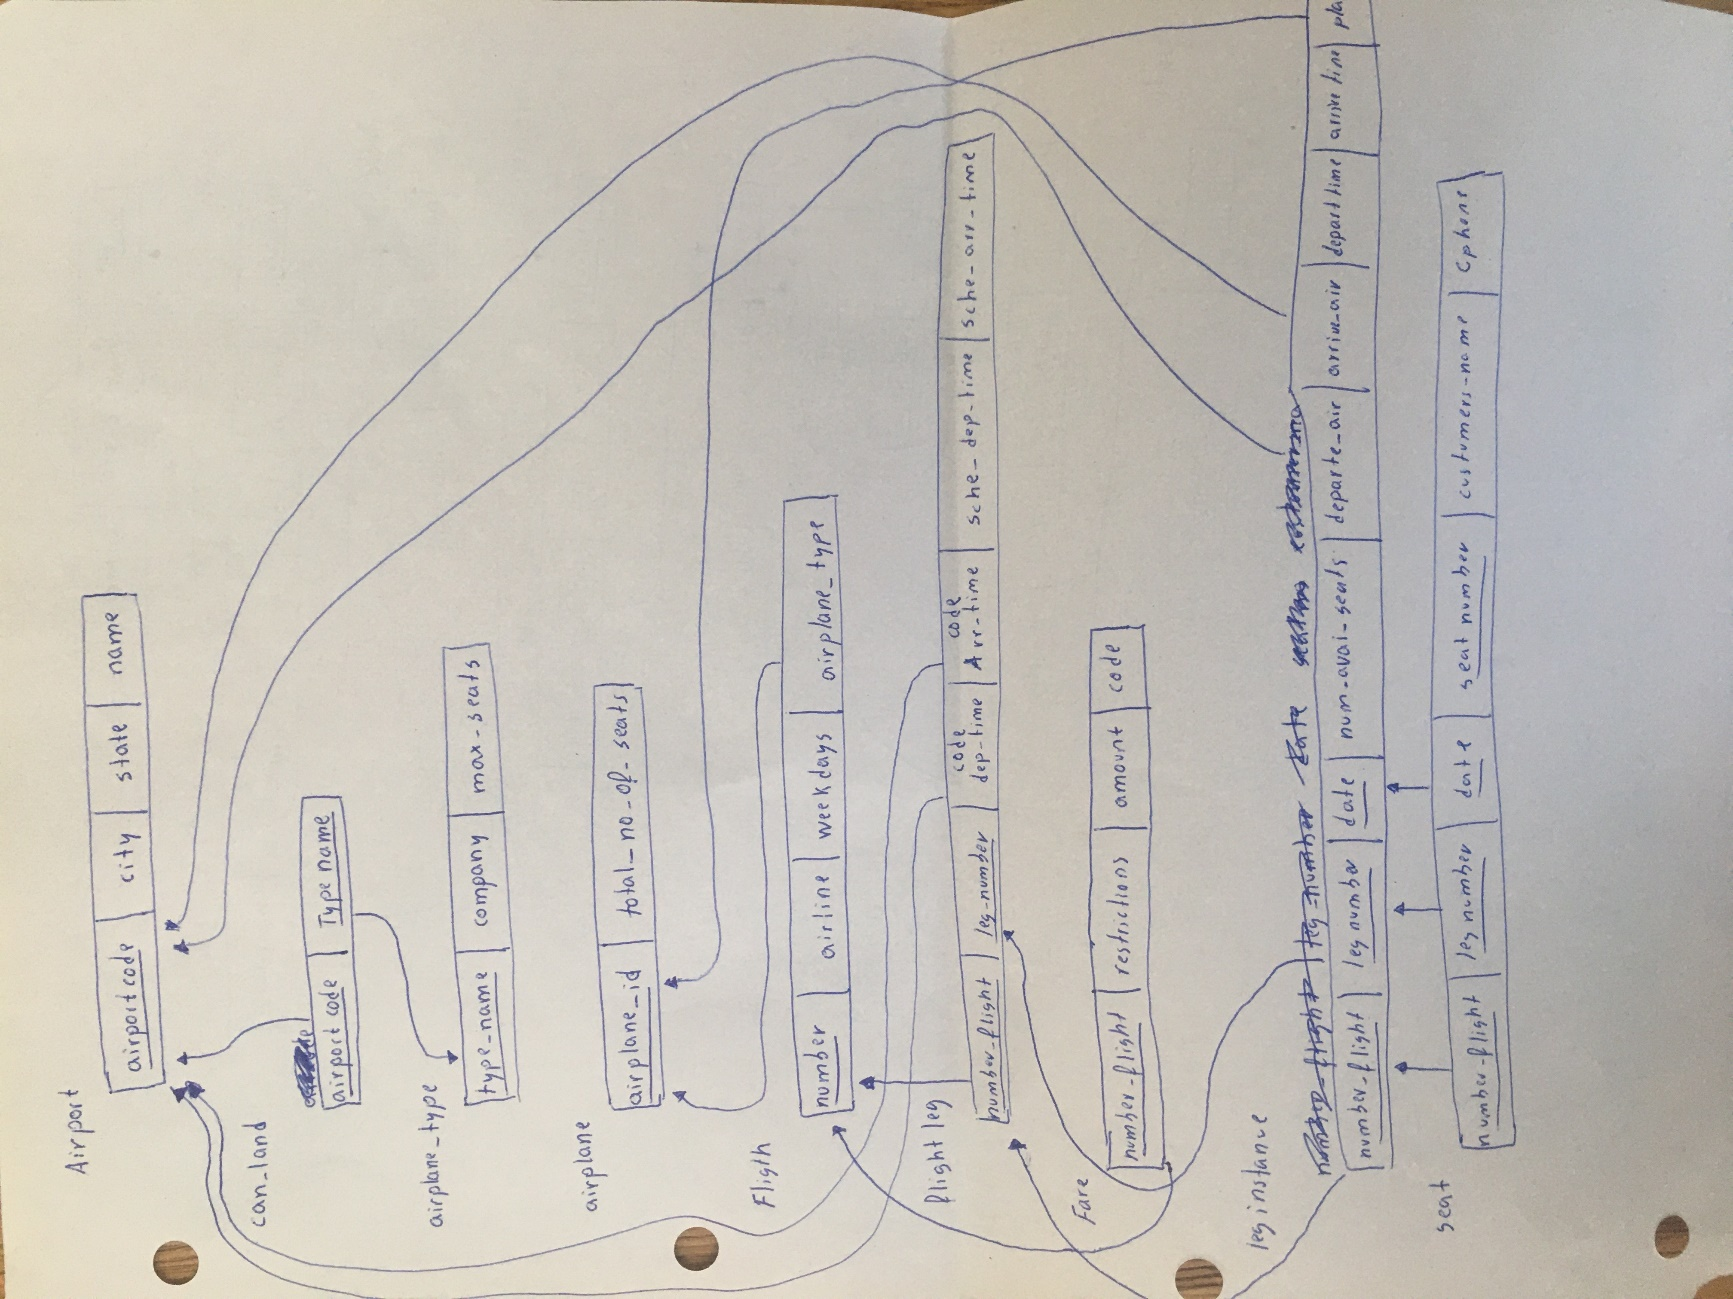 Airport
airportcode city state name
can_land
airport code Type name
airplane_type
type_name company max-seats
airplane
airplane_id total_no_of_seats
Fligth
number airline weekdays airplane_type
flight leg
code code
number_flight leg-number dep-time Arr-time sche_dep-time sche_arr-time
Fare
number_flight restrictions amount code
leg instance
number_flight leg number date
number_flight leg number date num_avai_seats departe_air arrive_air depart time arrive time
seat
number_flight leg number date seat number custumers-name Cphone